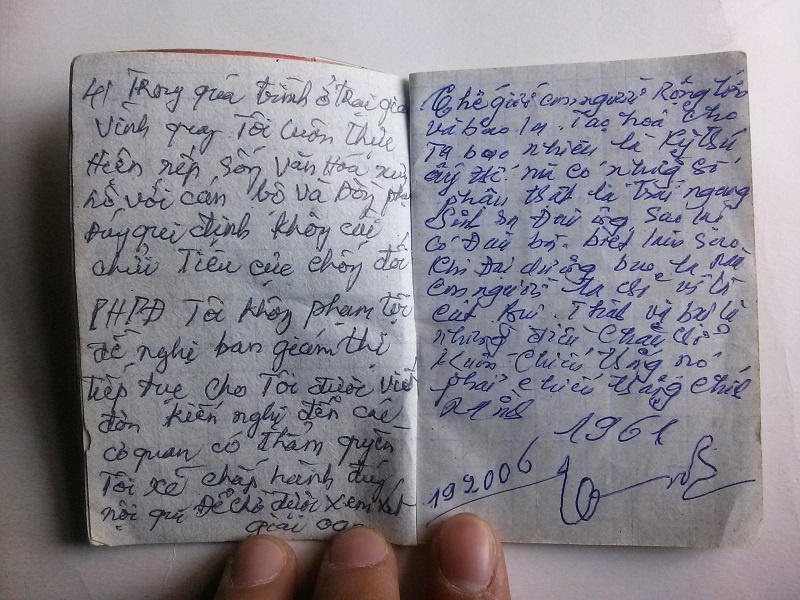 4/ Trong quá trình ở Trại gia
Vinh quay Tôi luôn thực
Hiện nếp sống Văn Hóa xư
hô với cán bộ và Đồng phạ
Đúng qui định không cải
chửi Tiêu cực chống đối
PHPĐ Tôi không phạm tội
đề nghị ban giám thị
tiếp tục cho Tôi được viết
đơn kiến nghị đến các
cơ quan có Thẩm quyền
Tôi xẻ chấp hành đúng
nội qui Để chờ được xem xét
giải oan
Thế giới con người Rộng lớn
và bao la. Tạo hoá cho
Ta bao nhiêu là Kỳ thú
ấy thế mà có những số
phận thật là trái ngang
Sinh ra Đại ông sao lại
có Đại bà. biết làm sao
khi đại dương bao la mà
con người ta chỉ ví là
cát bụi. Thật vậy bao là
những điều
Muốn chiến thắng nó
phải chiến thắng chính
Mình
1961
192006